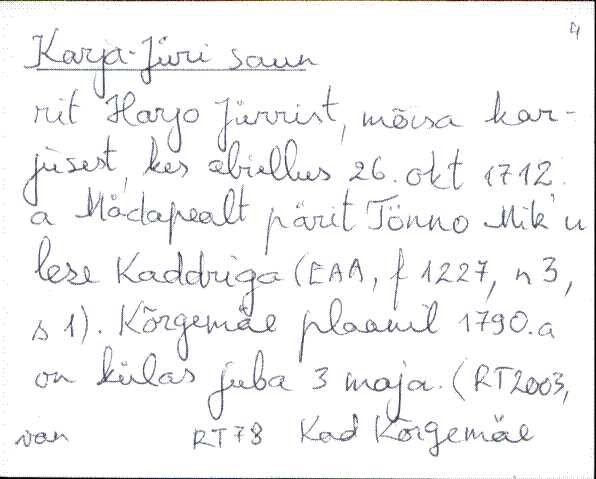 4
Karja-Jüri saun
rit Harjo Jürrist, mõisa kar-
jusest, kes abiellus 26. okt 1712.
a Mädapealt pärit Tönno Mik'u
lese Kaddriga (EAA, f 1227, n 3,
s 1). Kõrgemäe plaanil 1790.a
on külas juba 3 maja. (RT2003,
van RT78 Kad Kõrgemäe